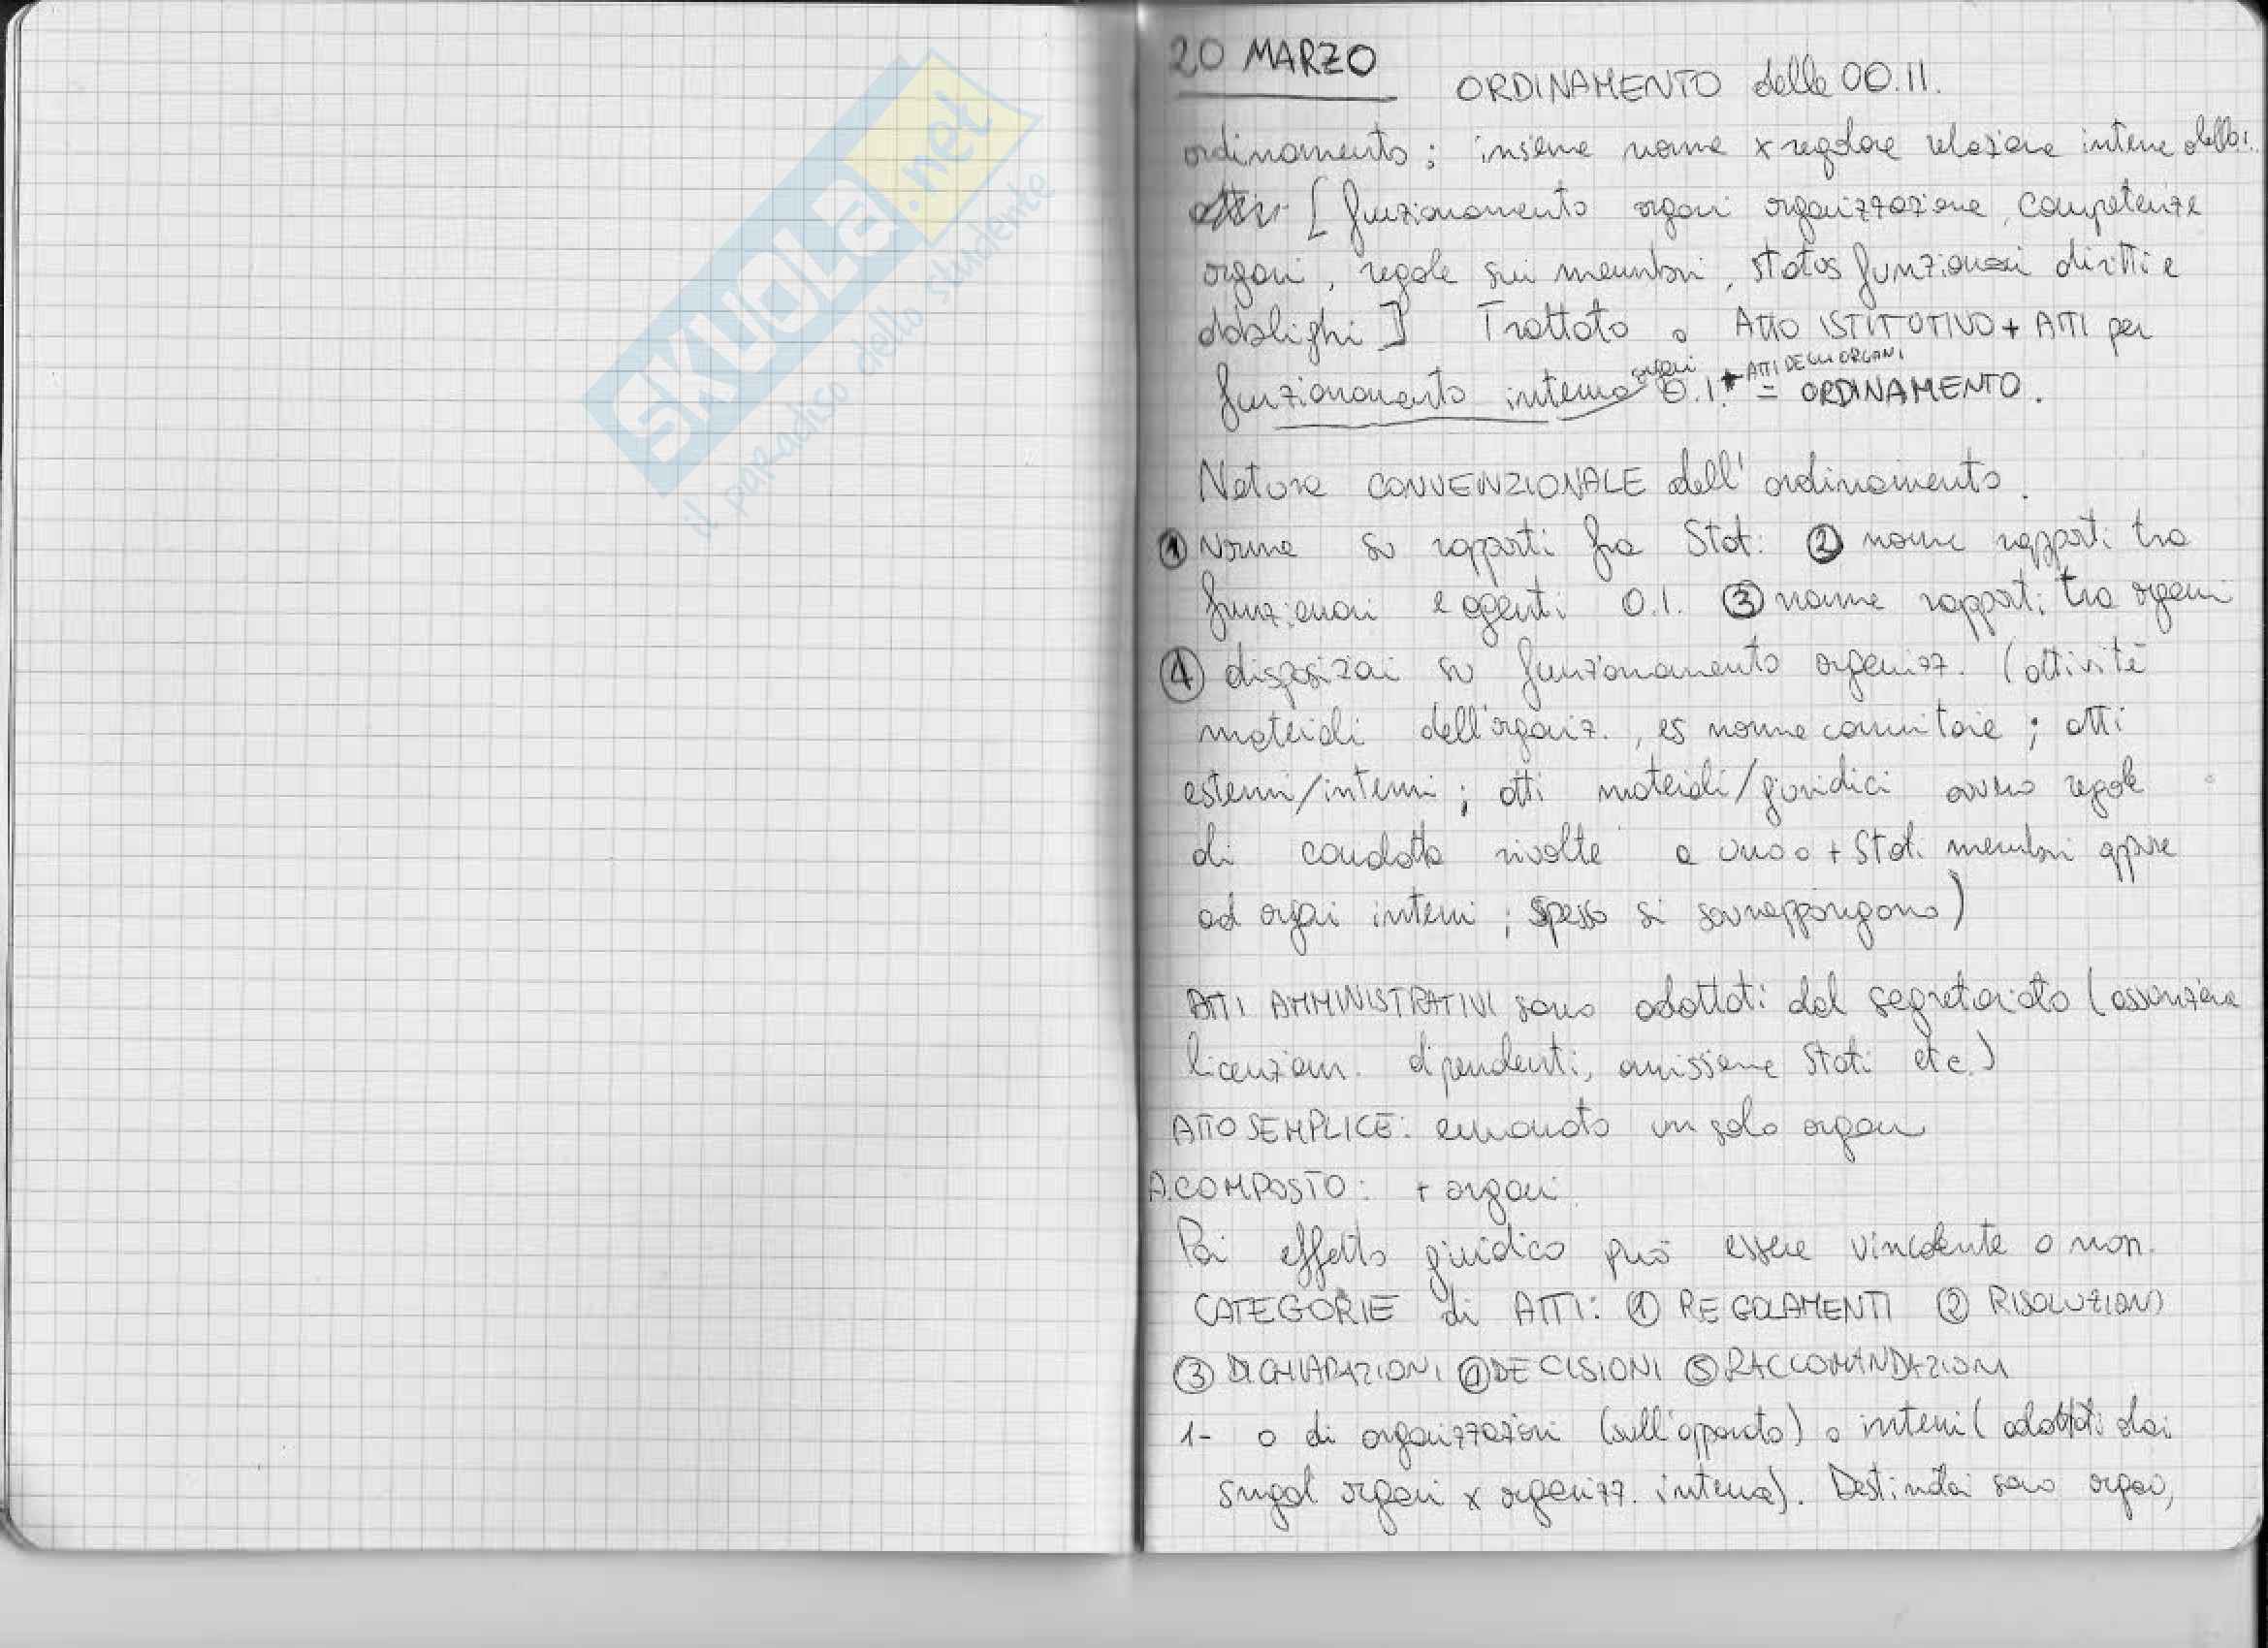 SKUOLA.net
il paradiso dello studente
20 MARZO
ORDINAMENTO delle OO.II.
ordinamento: insieme norme x regolare relazione interne della
[funzionamento organi organizzazione, competenze
organi, regole sui membri, status funzionari diritti e
obblighi] Trattato o Atto ISTITUTIVO + ATTI per
organi + ATTI DEGLI ORGANI
funzionamento interno O.I. = ORDINAMENTO.
Natura CONVENZIONALE dell'ordinamento.
① Norme su rapporti fra Stati ② norme rapporti tra
funzionari e agenti O.I. ③ norme rapporti tra organi
④ disposizioni su funzionamento organizz. (attività
materiali dell'organiz., es norme comunitarie; atti
esterni/interni; atti materiali/giuridici ovvero regole
di condotta rivolte a uno o + Stati membri oppure
ad organi interni; spesso si sovrappongono)
ATTI AMMINISTRATIVI sono adottati dal segretariato (assunzione
licenziam. dipendenti, ammissione Stati etc.)
ATTO SEMPLICE: emanato un solo organo
A.COMPOSTO: + organi
Poi effetto giuridico può essere vincolante o non.
CATEGORIE di ATTI: ① REGOLAMENTI ② RISOLUZIONI
③ DICHIARAZIONI ④ DECISIONI ⑤ RACCOMANDAZIONI
1- o di organizzazioni (sull'apparato) o interni (adottati dai
singoli organi x organizz. interna). Destinatari sono organi,